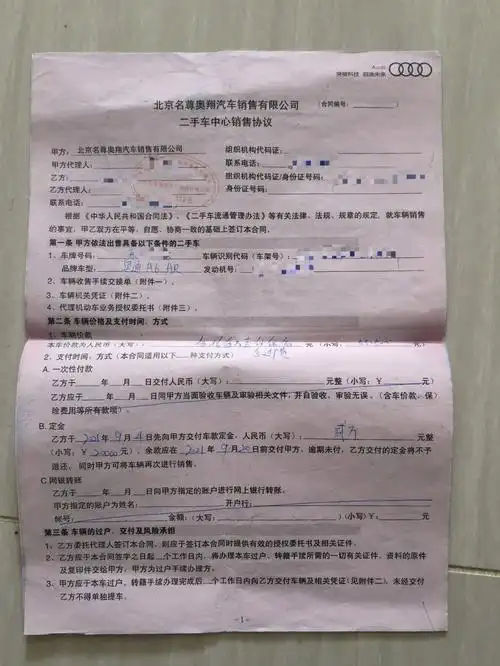 Audi
突破科技 启迪未来
北京名尊奥翔汽车销售有限公司 (合同编号:
二手车中心销售协议
甲方: 北京名尊奥翔汽车销售有限公司 组织机构代码证:
甲方代理人: 联系电话:
乙方: 组织机构代码证/身份证号码:
乙方代理人: 身份证号:
联系电话:
根据《中华人民共和国合同法》、《二手车流通管理办法》等有关法律、法规、规章的规定,就车辆销售
的事宜,甲乙双方在平等、自愿、协商一致的基础上签订本合同。
第一条 甲方依法出售具备以下条件的二手车
1、车牌号码: 车辆识别代码(车架号):
品牌车型: 奥迪A6 发动机号:
2、车辆收售手续交接单(附件一)。
3、车辆相关凭证(附件二)。
4、代理机动车业务授权委托书(附件三)。
第二条 车辆价格及支付时间、方式
1、车辆价款
本车价款为人民币(大写): 元(小写:
2、支付时间、方式(本合同适用以下 种支付方式)
A. 一次性付款
乙方于 年 月 日交付人民币(大写): 元整(小写:¥ 元)
乙方应于 年 月 日同甲方当面验收车辆及审验相关文件,并自验收、审验无误。(含车价款、保
险费用等所有款项)。
B. 定金
乙方于 2021年9月4日先向甲方交付车款定金,人民币(大写): 贰万 元整
(小写:¥20000元),余款应在2021年9月20日前交付甲方,逾期未付,乙方交付的定金将不予
退还,同时甲方可将车辆再次进行销售。
C.网银转账
乙方于 年 月 日向甲方指定的账户进行网上银行转账。
甲方指定的账户为姓名: 开户行:
帐号: 金额:(大写) (小写)¥: 元
第三条 车辆的过户、交付及风险承担
1、乙方委托代理人签订本合同,则应于签订本合同时提供有效的授权委托书及相关证件。
2、乙方应于本合同签字之日起 个工作日内,将办理本车过户、转籍手续所需的一切有关证件、资料的原件
及复印件交给甲方,甲方为过户手续办理方。
3、甲方应于本车过户、转籍手续办理完成后 个工作日内向乙方交付车辆及相关凭证(见附件二),未经交付
乙方不得单独提车。
-1-